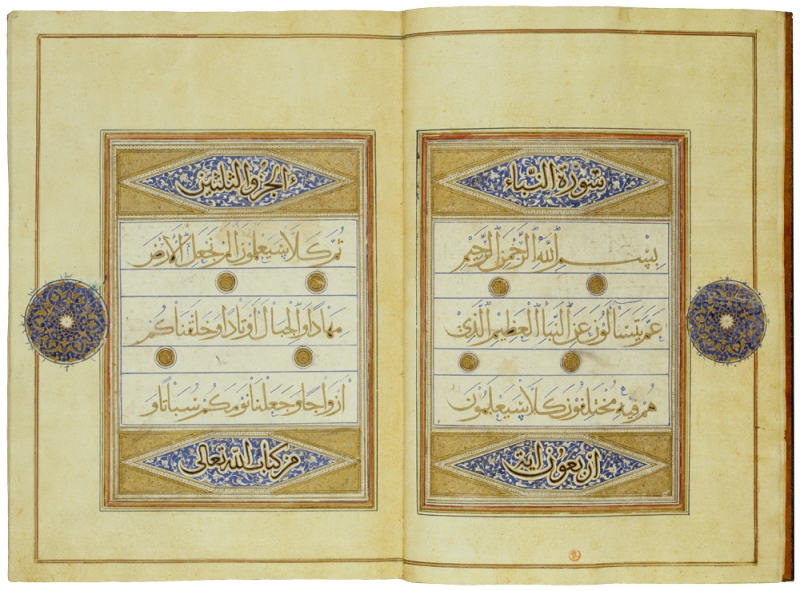 سورة النباء
بِسْمِ اللهِ الرَّحْمٰنِ الرَّحِيمِ
عَمَّ يَتَسَآءَلُونَ عَنِ النَّبَاِ الْعَظِيمِ الَّذِي
هُمْ فِيهِ مُخْتَلِفُونَ كَلَّا سَيَعْلَمُونَ
اربعون اية
الجزو الثلثين
ثُمَّ كَلَّا سَيَعْلَمُونَ اَلَمْ نَجْعَلِ الْاَرْضَ
مِهَادًا وَالْجِبَالَ اَوْتَادًا وَخَلَقْنَاكُمْ
اَزْوَاجًا وَجَعَلْنَا نَوْمَكُمْ سُبَاتًا وَ
من كتاب الله تعالى